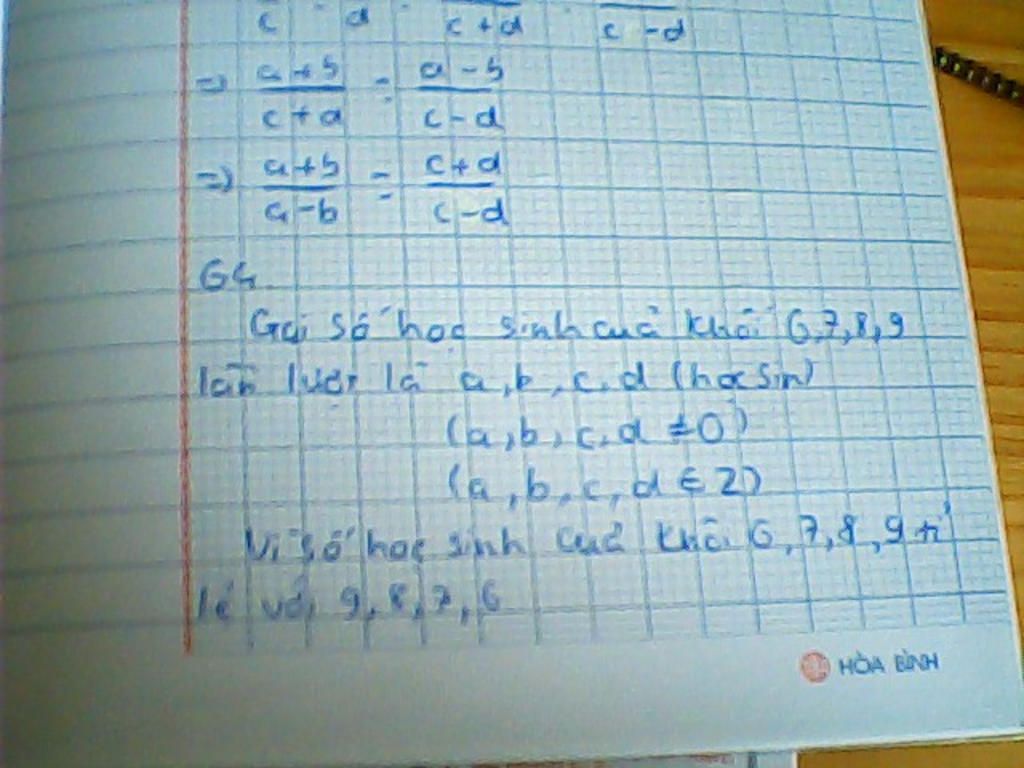 c d c+d c-d
=> a+b/c+d = a-b/c-d
=> a+b/a-b = c+d/c-d
64
Gọi số học sinh của khối 6,7,8,9
lần lượt là a,b,c,d (học sin)
(a,b,c,d ≠0)
(a,b,c,d ∈ Z)
Vì số học sinh của khối 6,7,8,9 tỉ
lệ với 9,8,7,6
HÒA BÌNH